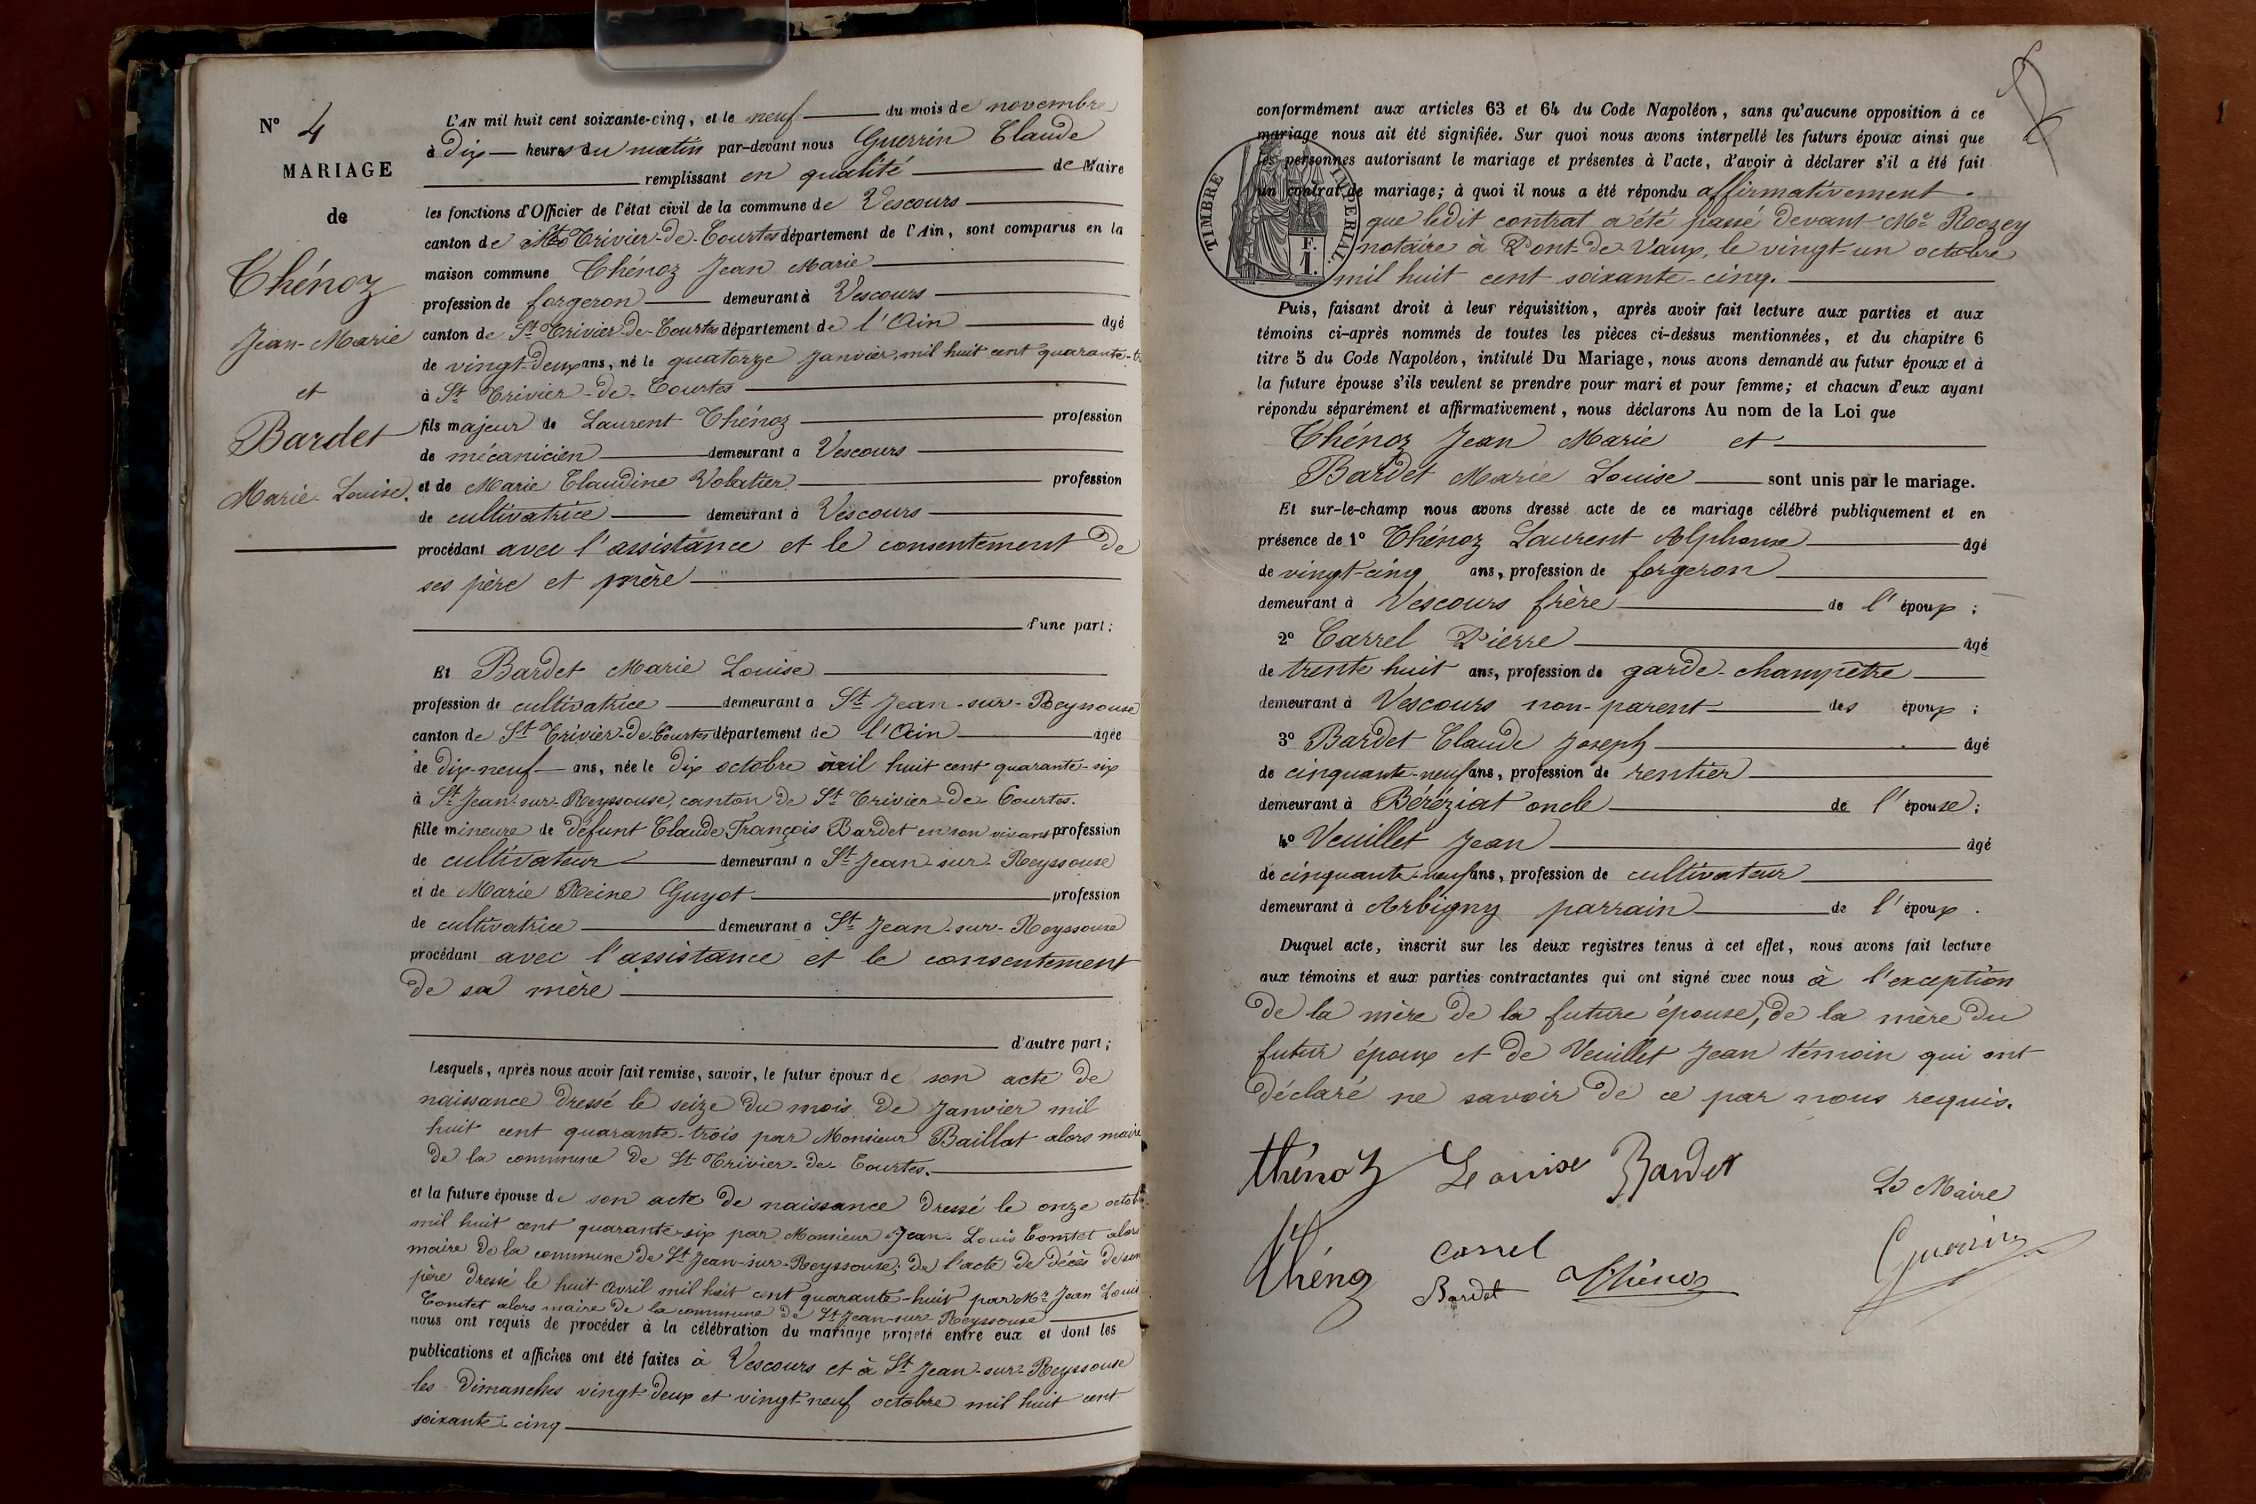 N° 4
MARIAGE
de
Thénoz
Jean-Marie
et
Bardet
Marie-Louise.
L'AN mil huit cent soixante-cinq, et le neuf du mois de novembre
à dix heures du matin par-devant nous Guerrin Claude
remplissant en qualité de Maire
les fonctions d'Officier de l'état civil de la commune de Vescours
canton de St Trivier-de-Courtes département de l'Ain, sont comparus en la
maison commune Thénoz Jean Marie
profession de forgeron demeurant à Vescours
canton de St Trivier-de-Courtes département de l'Ain âgé
de vingt-deux ans, né le quatorze janvier mil huit cent quarante-t
à St Trivier-de-Courtes
fils majeur de Laurent Thénoz profession
de mécanicien demeurant à Vescours
et de Marie Claudine Volatier profession
de cultivatrice demeurant à Vescours
procédant avec l'assistance et le consentement de
ses père et mère
d'une part;
Et Bardet Marie Louise
profession de cultivatrice demeurant à St Jean-sur-Reyssouse
canton de St Trivier-de-Courtes département de l'Ain âgée
de dix-neuf ans, née le dix octobre mil huit cent quarante-six
à St Jean-sur-Reyssouse, canton de St Trivier-de-Courtes.
fille mineure de défunt Claude François Bardet en son vivant profession
de cultivateur demeurant à St Jean-sur-Reyssouse
et de Marie Reine Guyot profession
de cultivatrice demeurant à St Jean-sur-Reyssouse
procédant avec l'assistance et le consentement
de sa mère
d'autre part;
Lesquels, après nous avoir fait remise, savoir, le futur époux de son acte de
naissance dressé le seize du mois de Janvier mil
huit cent quarante-trois par Monsieur Baillat alors maire
de la commune de St Trivier-de-Courtes.
et la future épouse de son acte de naissance dressé le onze octobre
mil huit cent quarante-six par Monsieur Jean-Louis Comtet alors
maire de la commune de St Jean-sur-Reyssouse; de l'acte de décès de son
père dressé le huit avril mil huit cent quarante-huit par Mr Jean Louis
Comtet alors maire de la commune de St Jean-sur-Reyssouse
nous ont requis de procéder à la célébration du mariage projeté entre eux et dont les
publications et affiches ont été faites à Vescours et à St Jean-sur-Reyssouse
les dimanches vingt-deux et vingt-neuf octobre mil huit cent
soixante-cinq
conformément aux articles 63 et 64 du Code Napoléon, sans qu'aucune opposition à ce
mariage nous ait été signifiée. Sur quoi nous avons interpellé les futurs époux ainsi que
les personnes autorisant le mariage et présentes à l'acte, d'avoir à déclarer s'il a été fait
un contrat de mariage; à quoi il nous a été répondu affirmativement.
que ledit contrat a été passé devant Me Rozey
notaire à Pont-de-Vaux, le vingt-un octobre
mil huit cent soixante-cinq.
TIMBRE IMPERIAL.
F.
1.
Puis, faisant droit à leur réquisition, après avoir fait lecture aux parties et aux
témoins ci-après nommés de toutes les pièces ci-dessus mentionnées, et du chapitre 6
titre 5 du Code Napoléon, intitulé Du Mariage, nous avons demandé au futur époux et à
la future épouse s'ils veulent se prendre pour mari et pour femme; et chacun d'eux ayant
répondu séparément et affirmativement, nous déclarons Au nom de la Loi que
Thénoz Jean Marie et
Bardet Marie Louise sont unis par le mariage.
Et sur-le-champ nous avons dressé acte de ce mariage célébré publiquement et en
présence de 1° Thénoz Laurent Alphonse âgé
de vingt-cinq ans, profession de forgeron
demeurant à Vescours frère de l'époux;
2° Carrel Pierre âgé
de trente huit ans, profession de garde-champêtre
demeurant à Vescours non-parent des époux;
3° Bardet Claude Joseph âgé
de cinquante-neuf ans, profession de rentier
demeurant à Béréziat oncle de l'épouse;
4° Veuillet Jean âgé
de cinquante-neuf ans, profession de cultivateur
demeurant à Arbigny parrain de l'époux.
Duquel acte, inscrit sur les deux registres tenus à cet effet, nous avons fait lecture
aux témoins et aux parties contractantes qui ont signé avec nous à l'exception
de la mère de la future épouse, de la mère du
futur époux et de Veuillet Jean témoin qui ont
déclaré ne savoir de ce par nous requis.
thénoz Louise Bardet
Le Maire
Guerrin
thénoz Carrel
Bardet Thénoz